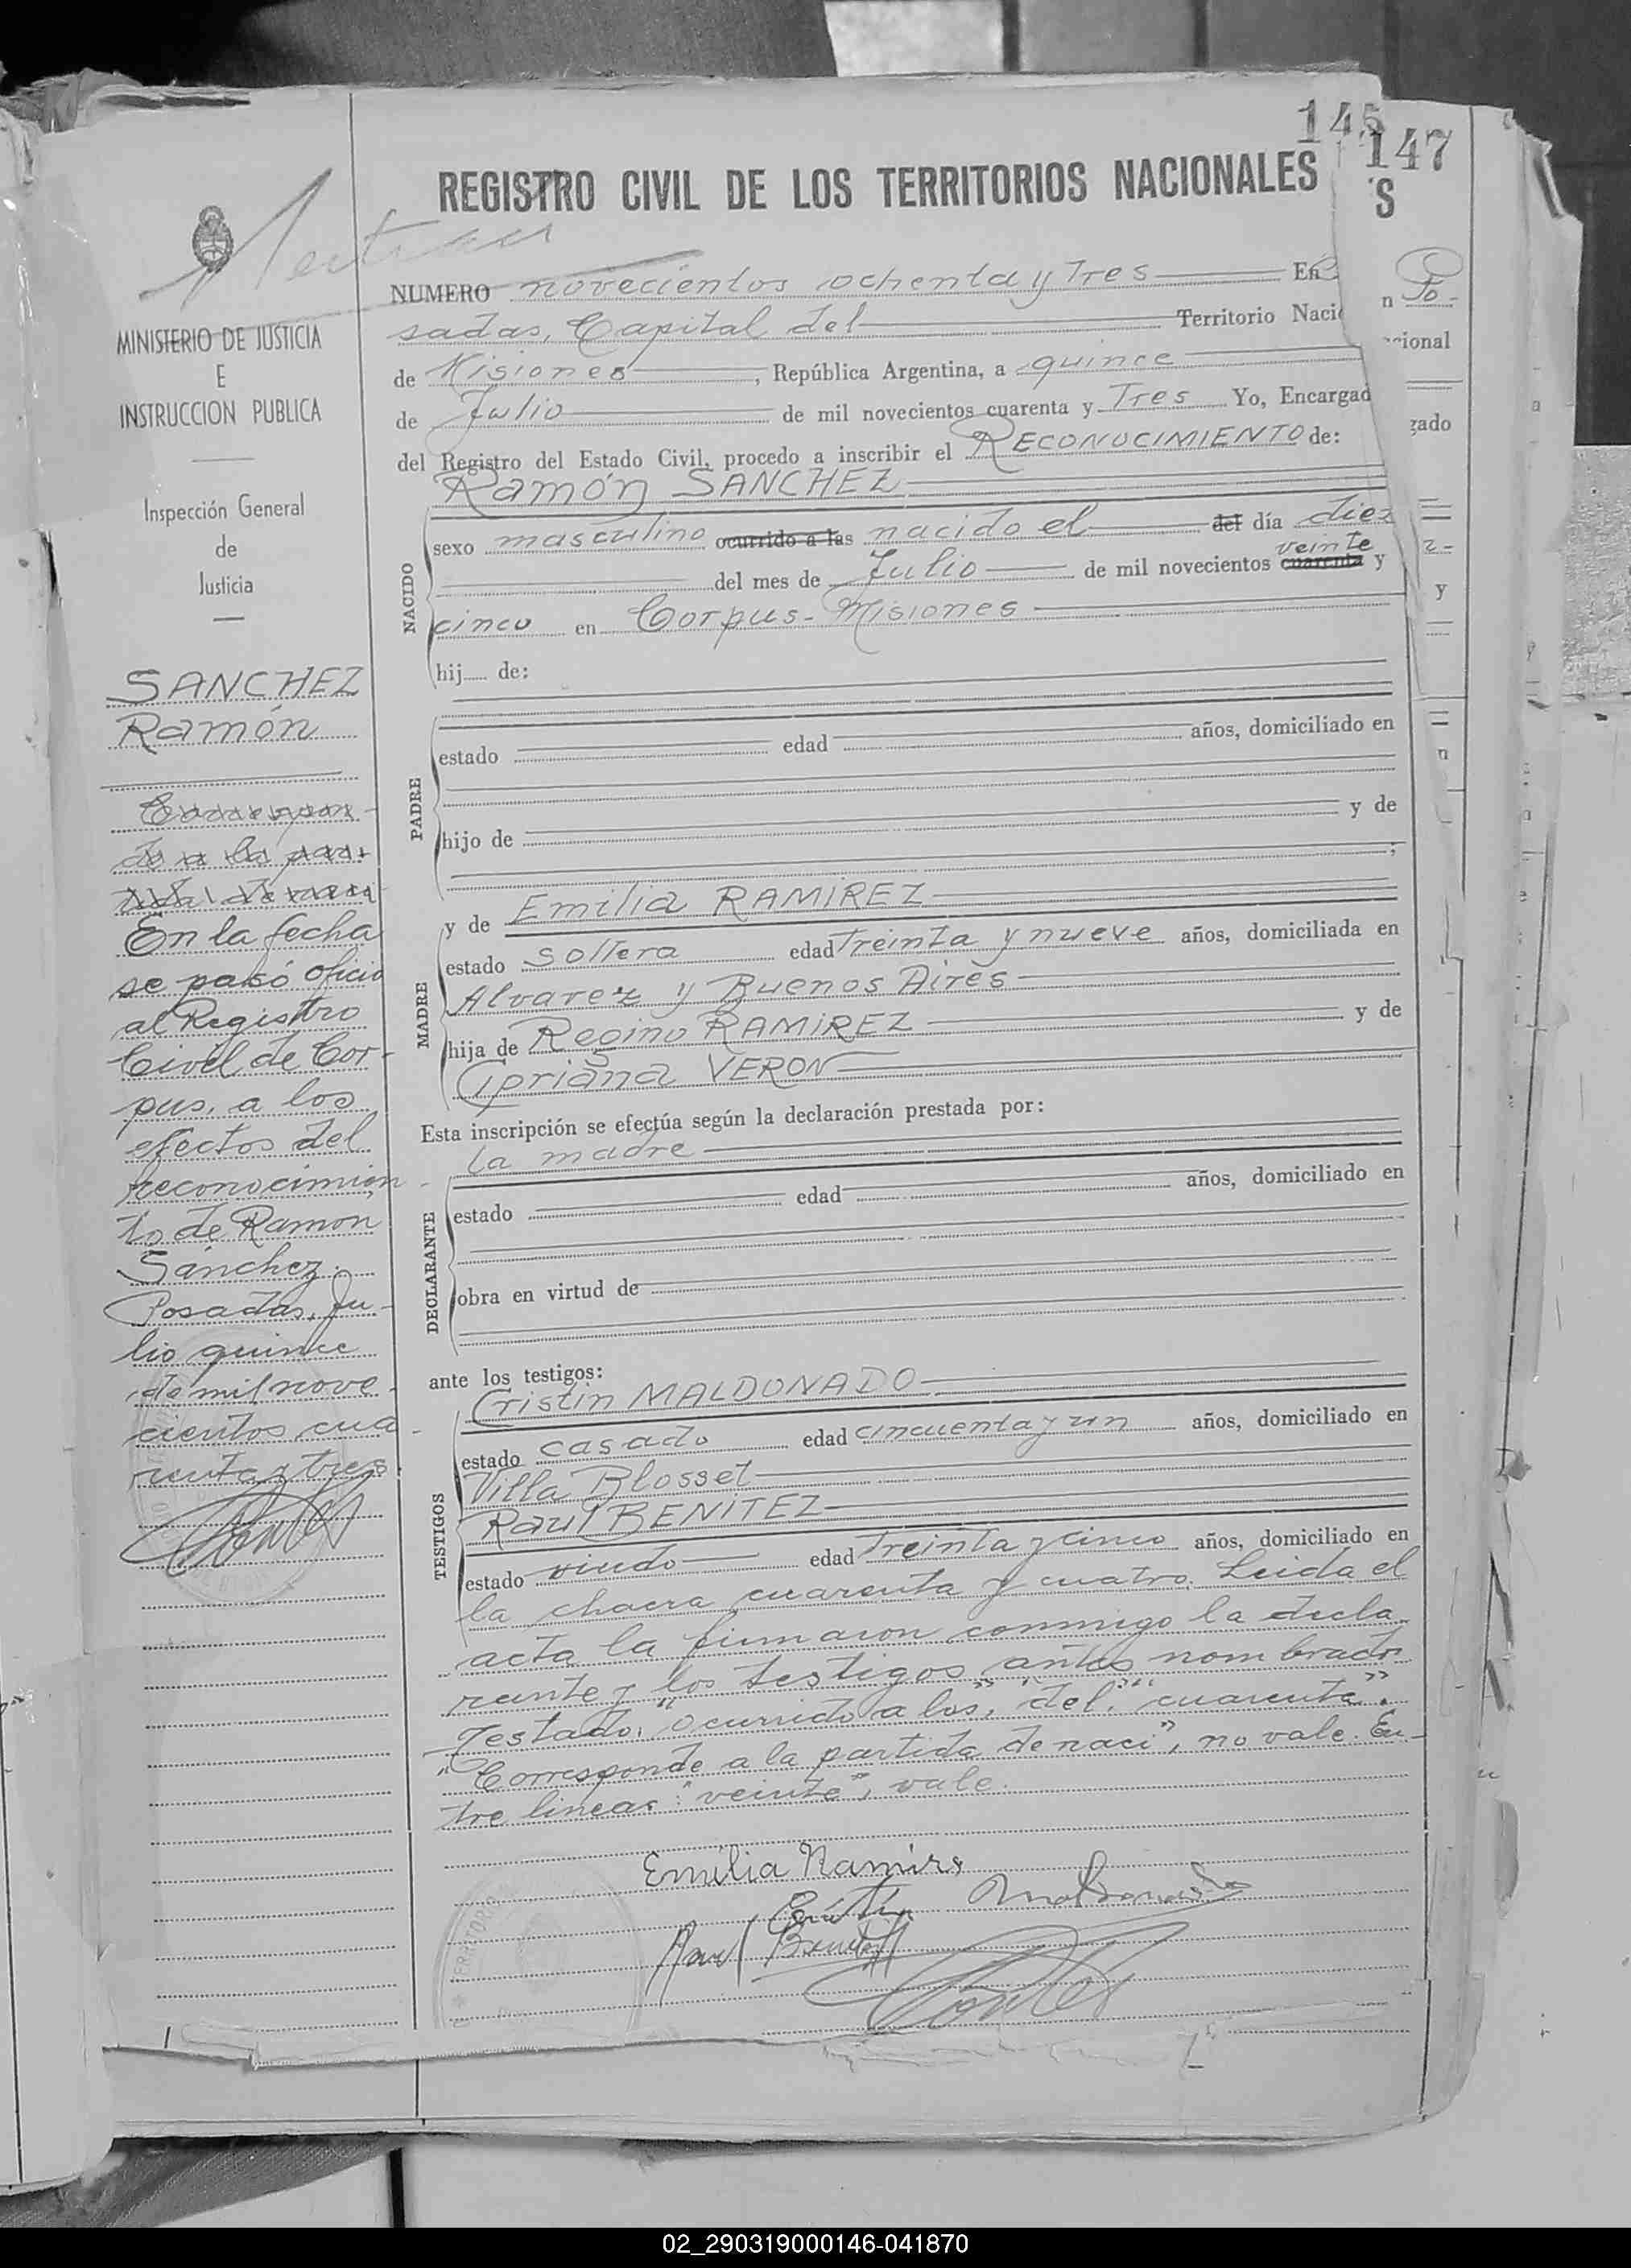 145
147
REGISTRO CIVIL DE LOS TERRITORIOS NACIONALES
S
NUMERO novecientos ochenta y Tres En
n Po-
sadas, Capital del Territorio Naci
cional
de Misiones, República Argentina, a quince
de Julio de mil novecientos cuarenta y Tres Yo, Encargad
gado
del Registro del Estado Civil, procedo a inscribir el RECONOCIMIENTO de:
Ramón SANCHEZ
NACIDO
sexo masculino ocurrido a las nacido el del día diez
veinte
del mes de Julio de mil novecientos cuarenta y
y
cinco en Corpus-Misiones
hij de:
PADRE
estado edad años, domiciliado en
hijo de y de
;
MADRE
y de Emilia RAMIREZ
estado soltera edad Treinta y nueve años, domiciliada en
Alvarez y Buenos Aires
hija de Regino RAMIREZ y de
Cipriana VERON
Esta inscripción se efectúa según la declaración prestada por:
la madre
DECLARANTE
estado edad años, domiciliado en
obra en virtud de
ante los testigos:
TESTIGOS
Cristin MALDONADO
estado casado edad cincuenta y un años, domiciliado en
Villa Blosset
Raul BENITEZ
estado viudo edad Treinta y cinco años, domiciliado en
la chacra cuarenta y cuatro. Leida el
acta la firmaron conmigo la decla-
rante y los testigos antes nombrados
Testado: "ocurrido a las", "del", "cuarenta".
"Corresponde a la partida de naci", no vale. En-
tre lineas: "veinte", vale.
Emilia Ramires
Cristin Maldonado
Raul Benitez
MINISTERIO DE JUSTICIA
E
INSTRUCCION PUBLICA
Inspección General
de
Justicia
SANCHEZ
Ramón
Correspon-
de a la par-
tida de naci
En la fecha
se pasó oficio
al Registro
Civil de Cor-
pus, a los
efectos del
reconocimien-
to de Ramon
Sánchez.
Posadas, Ju-
lio quince
de mil nove-
cientos cua-
renta y tres.
TERRITORIO
02_290319000146-041870